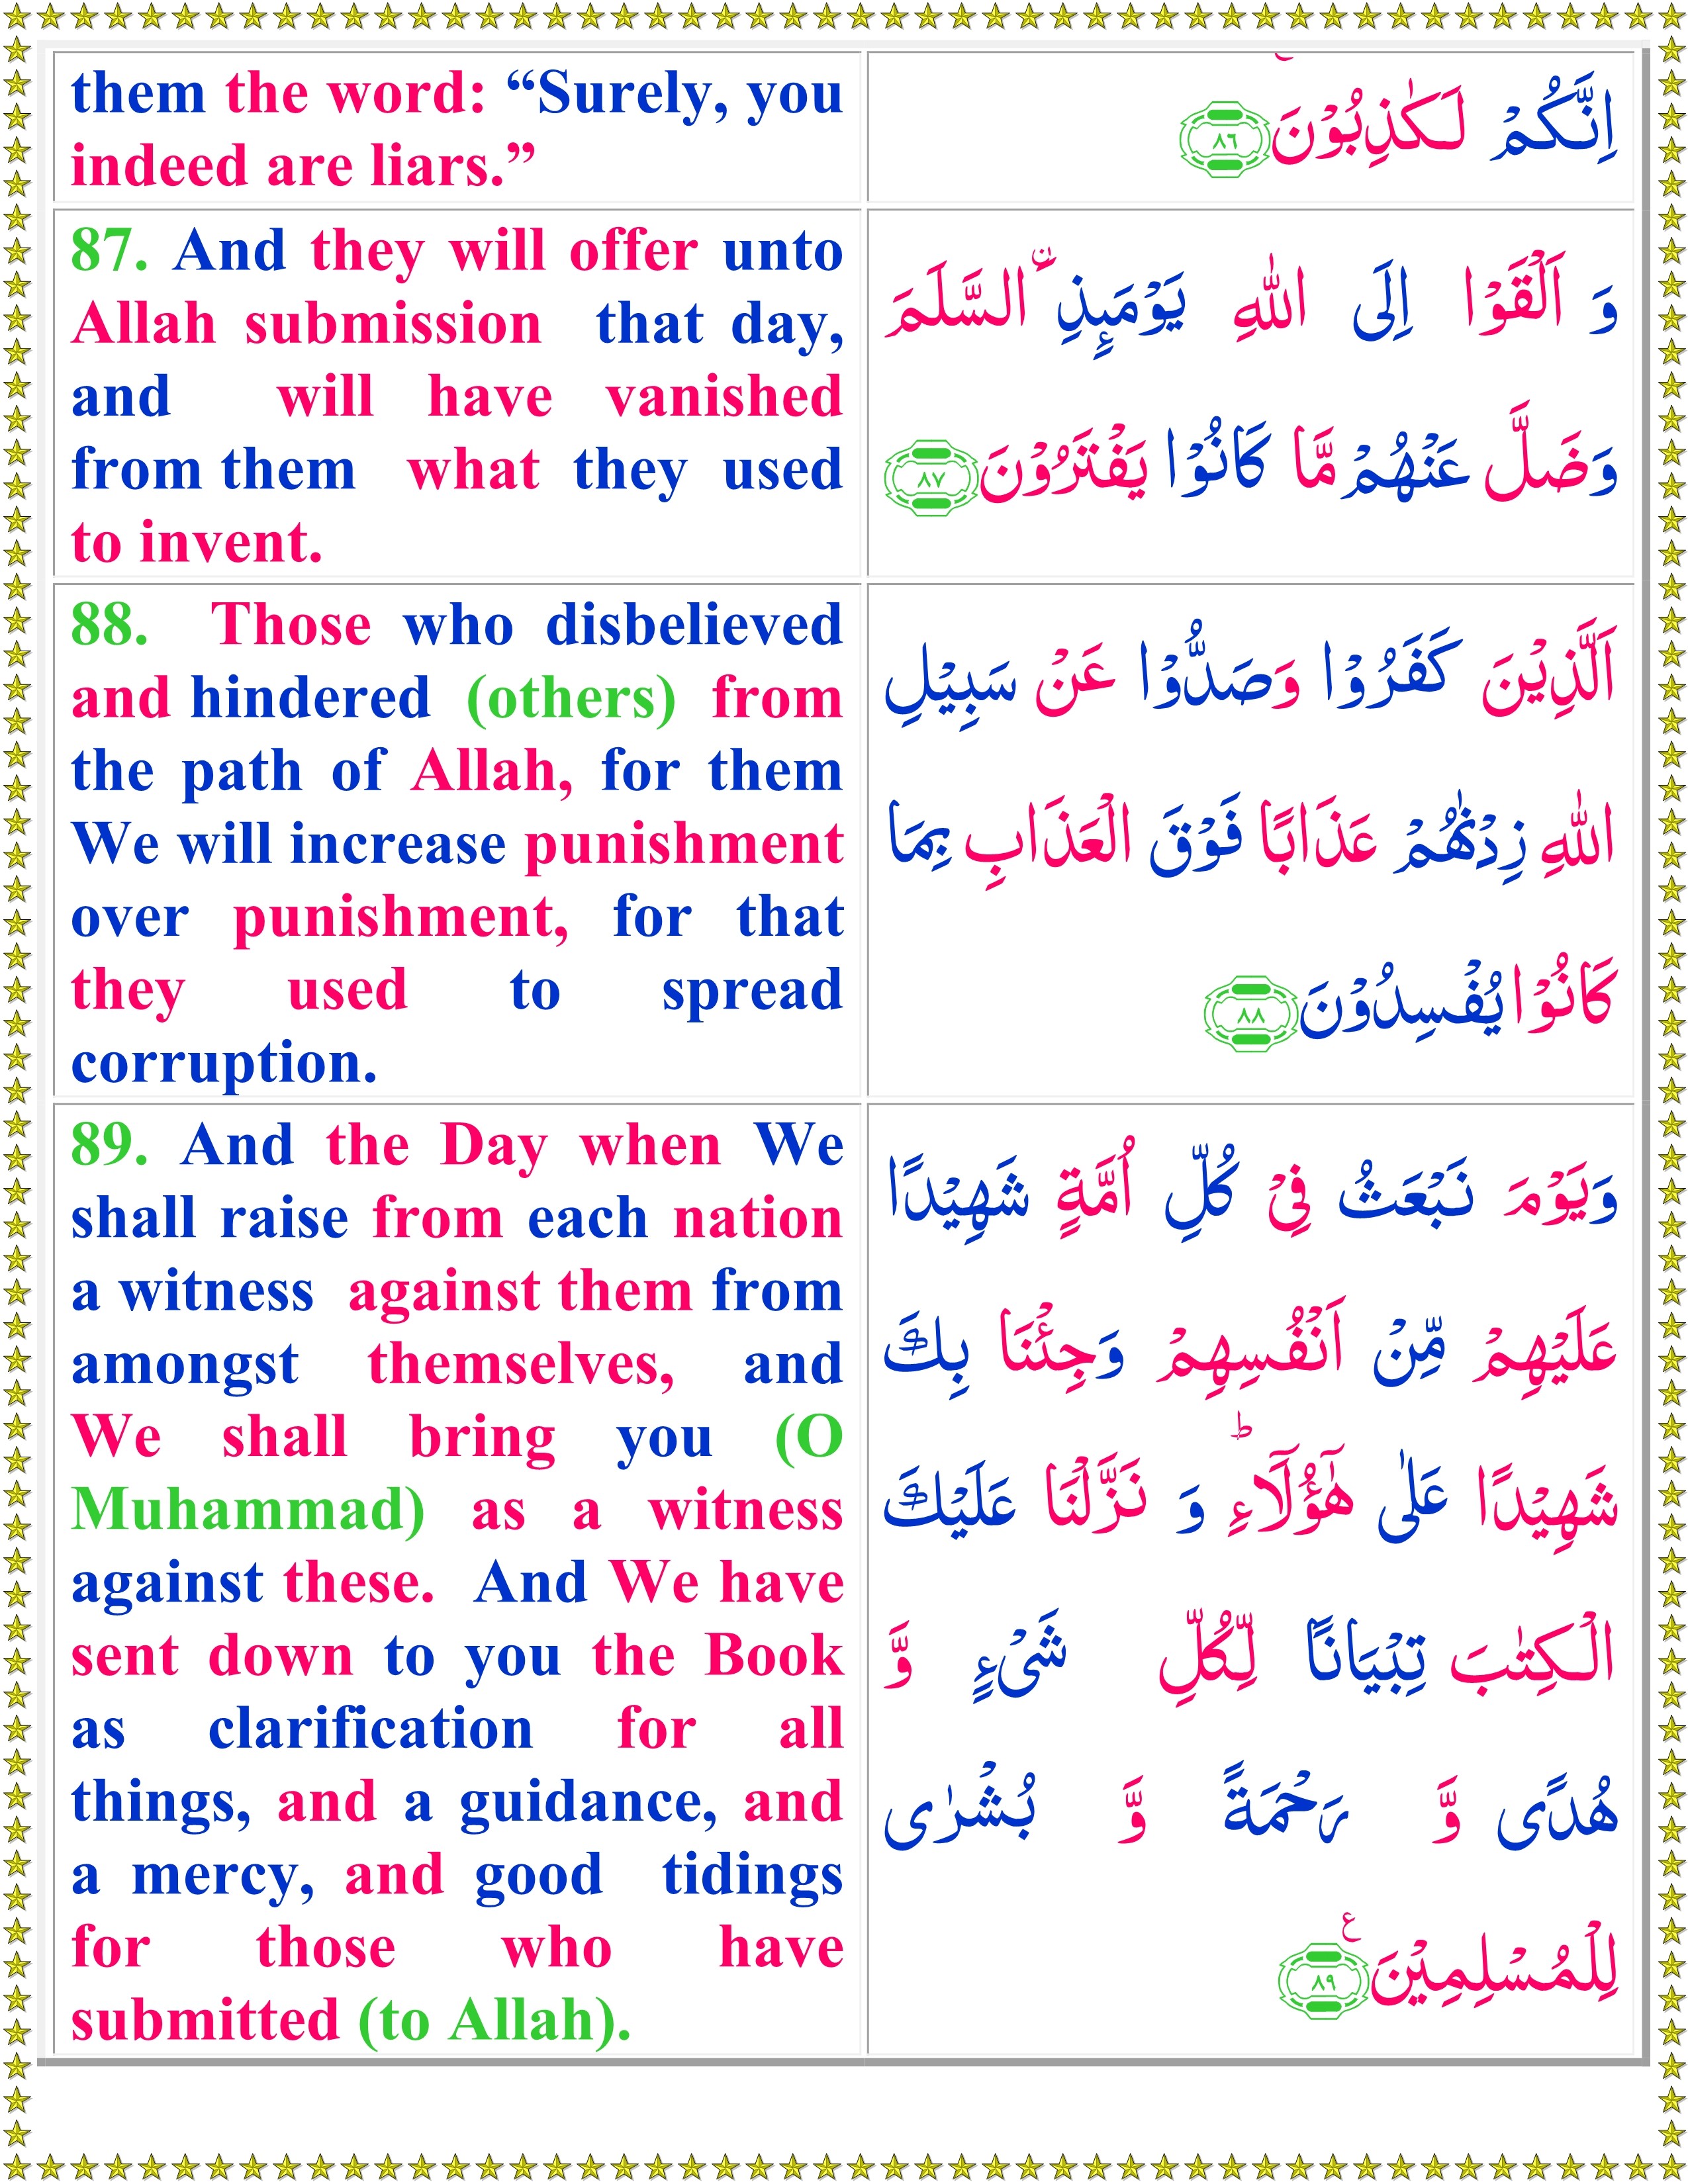 them the word: “Surely, you
indeed are liars.”
اِنَّكُمْ لَـكٰذِبُوْنَ‌ۚ‏ ﴿۸۶﴾
87. And they will offer unto
Allah submission that day,
and will have vanished
from them what they used
to invent.
وَ اَلْقَوْا اِلَى اللّٰهِ يَوْمَٮِٕذِ ۨالسَّلَمَ
وَضَلَّ عَنْهُمْ مَّا كَانُوْا يَفْتَرُوْنَ ﴿۸۷﴾
88. Those who disbelieved
and hindered (others) from
the path of Allah, for them
We will increase punishment
over punishment, for that
they used to spread
corruption.
اَلَّذِيْنَ كَفَرُوْا وَصَدُّوْا عَنْ سَبِيْلِ
اللّٰهِ زِدْنٰهُمْ عَذَابًا فَوْقَ الْعَذَابِ بِمَا
كَانُوْا يُفْسِدُوْنَ ﴿۸۸﴾
89. And the Day when We
shall raise from each nation
a witness against them from
amongst themselves, and
We shall bring you (O
Muhammad) as a witness
against these. And We have
sent down to you the Book
as clarification for all
things, and a guidance, and
a mercy, and good tidings
for those who have
submitted (to Allah).
وَيَوْمَ نَـبْعَثُ فِىْ كُلِّ اُمَّةٍ شَهِيْدًا
عَلَيْهِمْ مِّنْ اَنْفُسِهِمْ‌ وَجِئْنَا بِكَ
شَهِيْدًا عَلٰى هٰٓؤُلَاۤءِ‌ؕ وَ نَزَّلْنَا عَلَيْكَ
الْـكِتٰبَ تِبْيَانًا لِّـكُلِّ شَىْءٍ وَّ
هُدًى وَّ رَحْمَةً وَّ بُشْرٰى
لِلْمُسْلِمِيْنَ ﴿۸۹﴾ ع